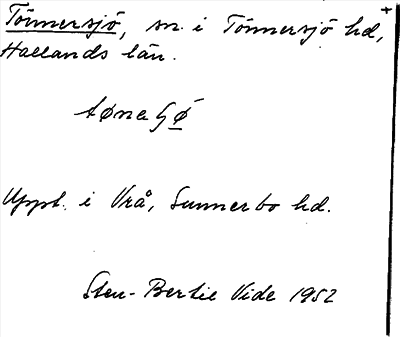 Tönnersjö, sn. i Tönnersjö hd, +
Hallands län.
Uppt. i Vrå, Sunnerbo hd.
Sten-Bertil Vide 1952